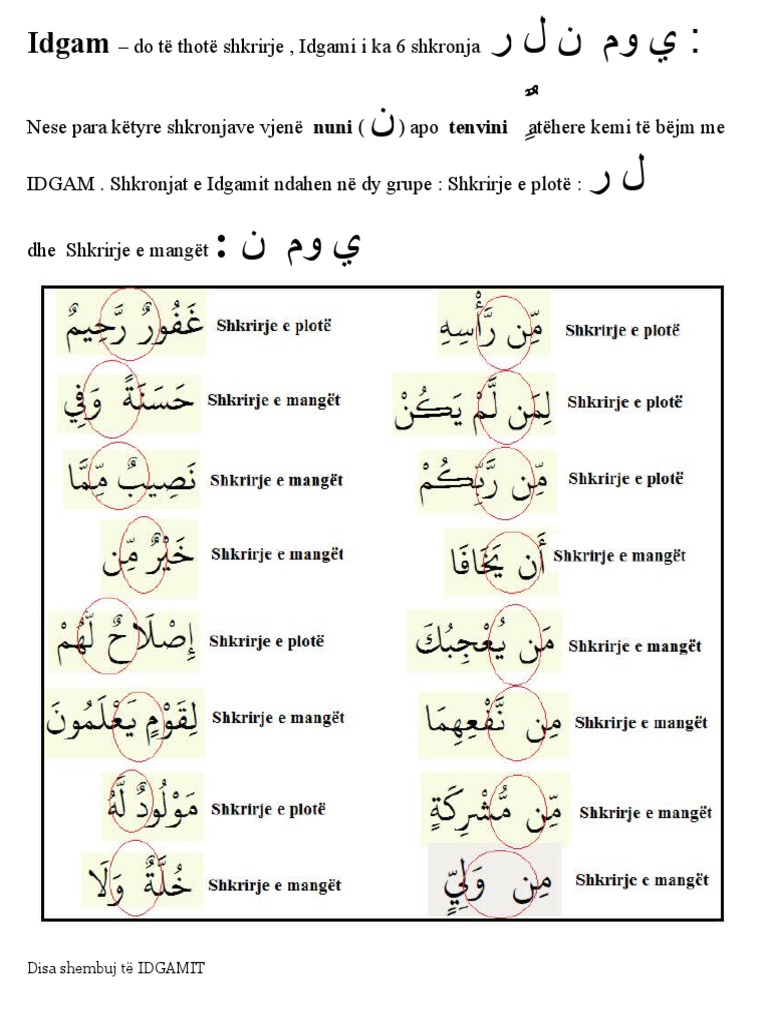 Idgam – do të thotë shkrirje , Idgami i ka 6 shkronja ي و م ن ل ر :
Nese para këtyre shkronjave vjenë nuni ( ن ) apo tenvini ـٌـٍ atëhere kemi të bëjm me
IDGAM . Shkronjat e Idgamit ndahen në dy grupe : Shkrirje e plotë : ل ر
dhe Shkrirje e mangët : ي و م ن
غَفُورٌ رَّحِيمٌ Shkrirje e plotë مِّن رَّأْسِهِ Shkrirje e plotë
حَسَنَةً وَفِي Shkrirje e mangët لِمَن لَّمْ يَكُنْ Shkrirje e plotë
نَصِيبٌ مِّمَّا Shkrirje e mangët مِّن رَّبِّكُمْ Shkrirje e plotë
خَيْرٌ مِّن Shkrirje e mangët أَن يَخَافَا Shkrirje e mangët
إِصْلَاحٌ لَّهُمْ Shkrirje e plotë مَن يُعْجِبُكَ Shkrirje e mangët
لِقَوْمٍ يَعْلَمُونَ Shkrirje e mangët مِن نَّفْعِهِمَا Shkrirje e mangët
مَوْلُودٌ لَّهُ Shkrirje e plotë مِّن مُّشْرِكَةٍ Shkrirje e mangët
خُلَّةٌ وَلَا Shkrirje e mangët مِن وَلِيٍّ Shkrirje e mangët
Disa shembuj të IDGAMIT